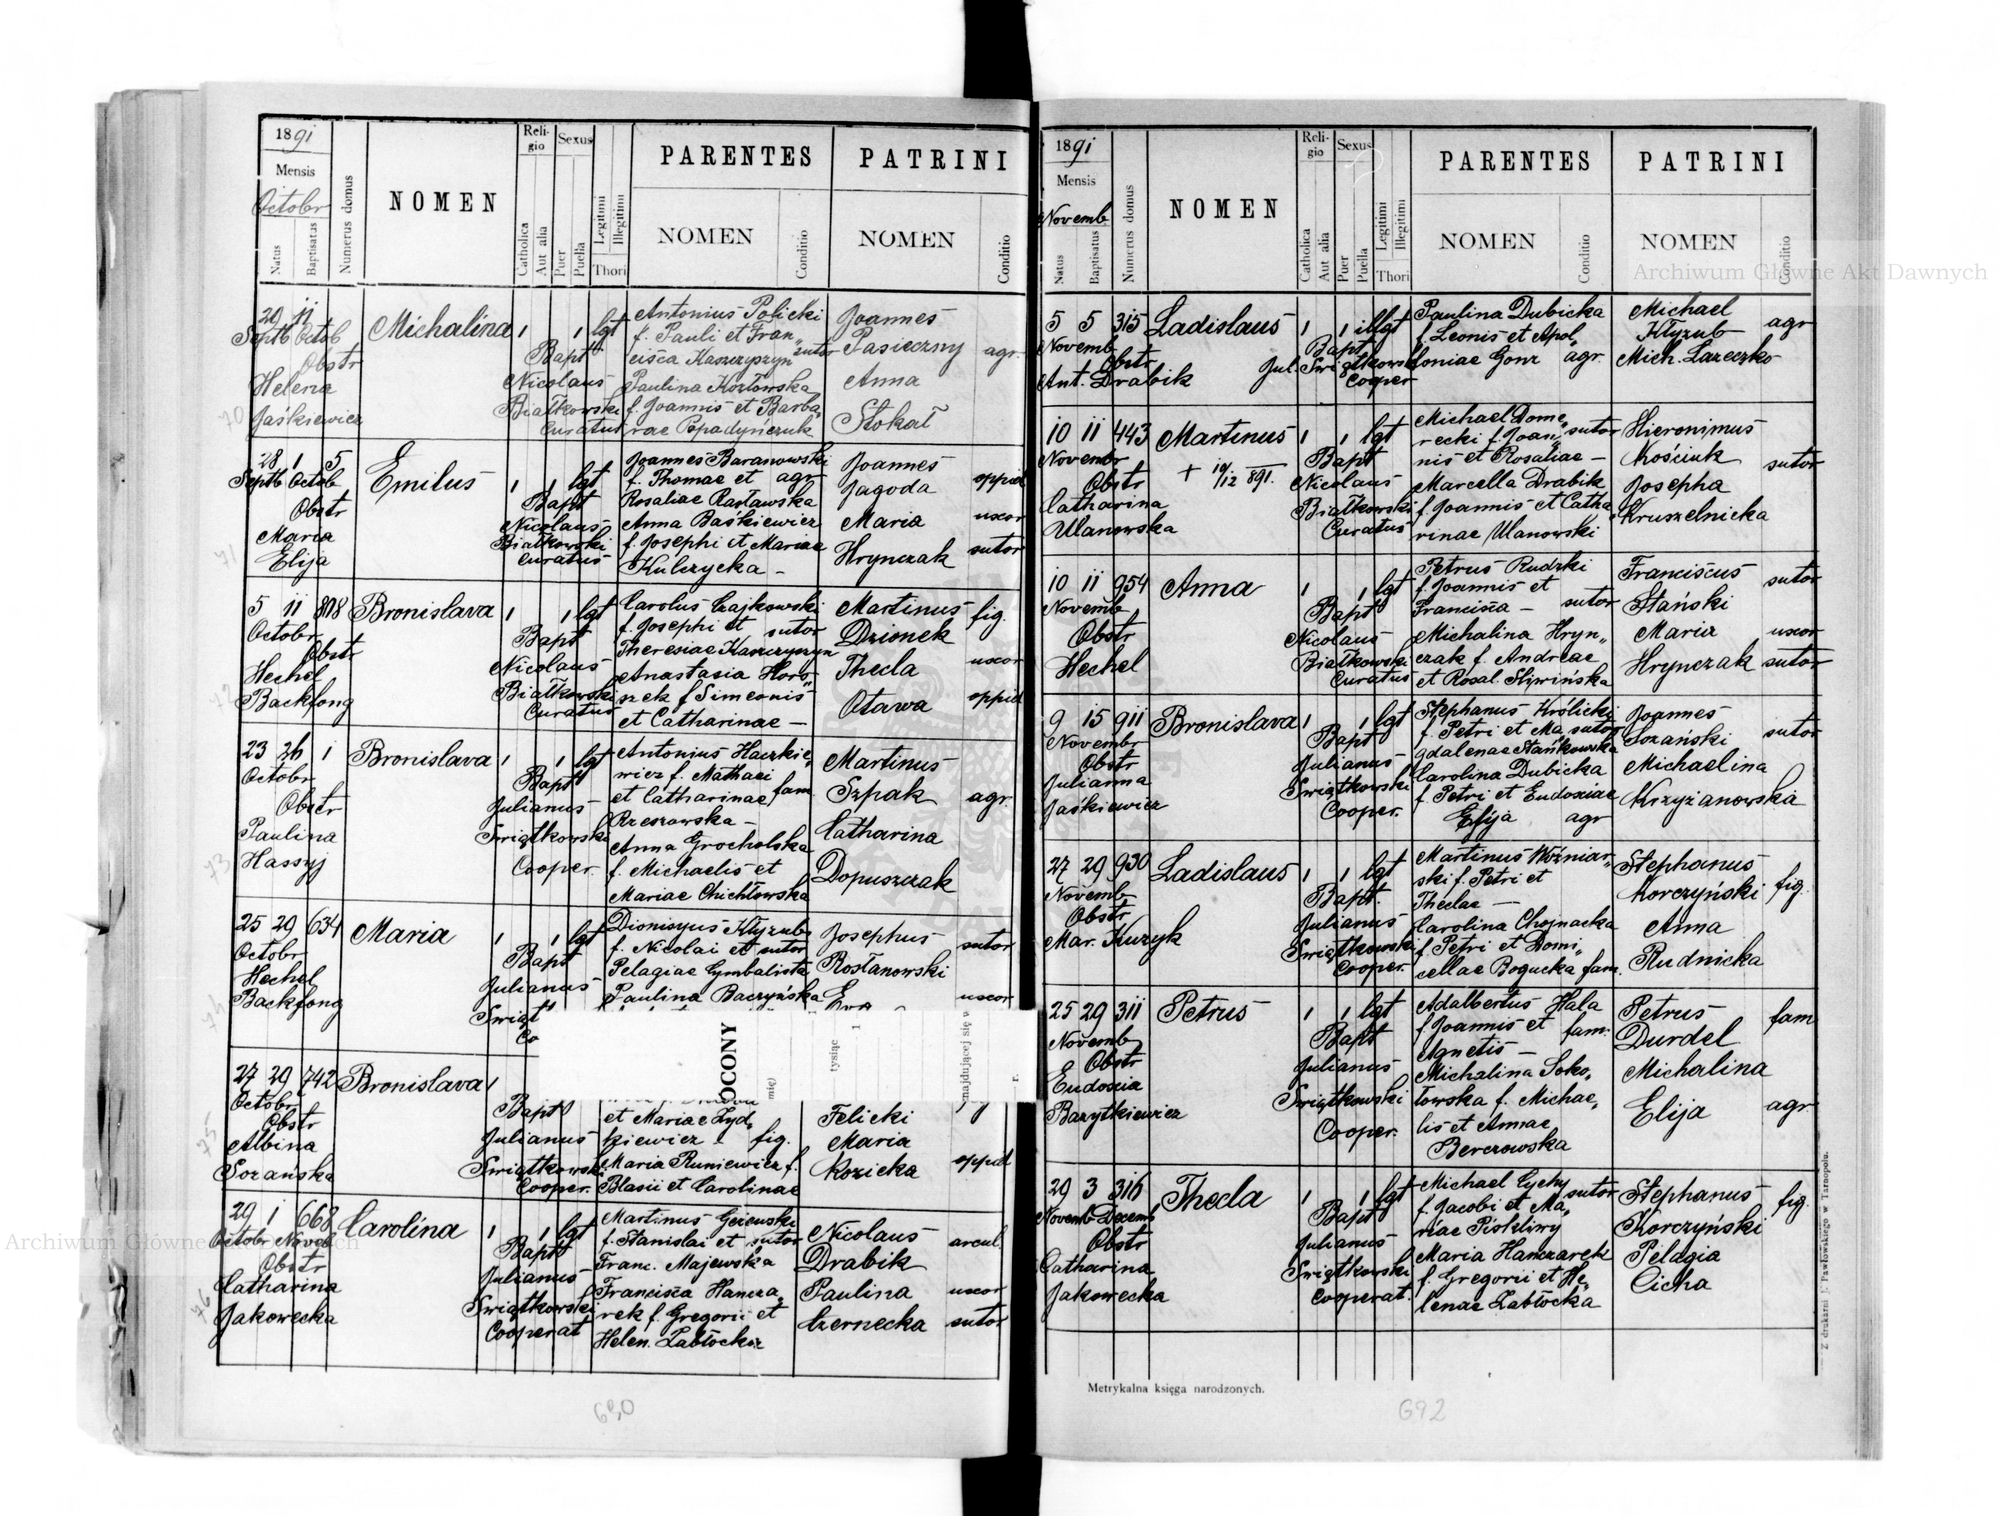 1891
Mensis
Octobr
Natus
Baptisatus
Numerus domus
NOMEN
Religio
Catholica
Aut alia
Sexus
Puer
Puella
Legitimi
Illegitimi
Thori
PARENTES
NOMEN
Conditio
PATRINI
NOMEN
Conditio
29 11
Septb Octob
Obstr
Helena
Jaśkiewicz
Michalina
1 1 lgt
Bapt
Nicolaus
Białkowski
Curatus
Antonius Policki
f. Pauli et Fran„
cisca Kaszczyszyn sutor
Paulina Kozłowska
f. Joannis et Barba„
rae Popadyńczuk
Joannes
Pasieczny agr.
Anna
Stokał
28 1 5
Septb Octob
Obstr
Maria
Elija
Emilus
1 1 lgt
Bapt
Nicolaus
Białkowski
Curatus
Joannes Baranowski
f. Thomae et agr
Rosaliae Rastawska
Anna Baśkiewicz
f. Josephi et Mariae
Kulczycka –
Joannes
Jagoda oppid
Maria uxor
Hrynczak sutor
5 11 808
Octobr
Obstr
Hechel
Backfong
Bronislava
1 1 lgt
Bapt
Nicolaus
Białkowski
Curatus
Carolus Czajkowski
f. Josephi et sutor
Theresiae Kaszczyszyn
Anastasia Horo„
szek f Simeonis
et Catharinae –
Martinus fig.
Dzionek
Thecla uxor
Otawa oppid
23 26 1
Octobr
Obstr
Paulina
Hassyj
Bronislava
1 1 lgt
Bapt
Julianus
Swiątkowski
Cooper.
Antonius Haczkie„
wicz f. Mathaei
et Catharinae fam.
Rzeszowska –
Anna Grocholska
f. Michaelis et
Mariae Chichłowska
Martinus
Szpak agr
Catharina
Dopuszczak
25 29 634
Octobr
Hechel
Backfong
Maria
1 1 lgt
Bapt
Julianus
Swiąt
Co
Dionisyus Kłyzub
f. Nicolai et sutor
Pelagiae Cymbalista
Paulina Baczyńska
Josephus sutor
Rosłanowski
Eva uxor
OCONY
mię)
tysiąc
1
znajdującej się w
r.
27 29 742
Octobr
Obstr
Albina
Sozańska
Bronislava
1
Bapt
Julianus
Swiątkowski
Cooper.
et Mariae Zyd„
kiewicz – fig.
Maria Runiewicz f.
Blasii et Carolinae
Felicki
Maria
Kozicka oppid
29 1 668
Octobr Noveb
Obstr
Catharina
Jakowecka
Carolina
1 1 lgt
Bapt
Julianus
Swiątkowski
Cooperat
Martinus Gciewski
f. Stanislai et sutor
Franc. Majewska
Francisca Hancza„
rek f. Gregorii et
Helen. Zabłockiz
Nicolaus arcul.
Drabik
Paulina uxor
Czernecka sutor
690
1891
Mensis
Novemb
Natus
Baptisatus
Numerus domus
NOMEN
Religio
Catholica
Aut alia
Sexus
Puer
Puella
Legitimi
Illegitimi
Thori
PARENTES
NOMEN
Conditio
PATRINI
NOMEN
Conditio
5 5 315
Novemb
Obstr
Ant. Drabik
Ladislaus
1 1 illgt
Bapt
Jul. Swiątkowski
Cooper
Paulina Dubicka
f Leonis et Apol„
loniae Gonz agr.
Michael
Kłyzub agr
Mich. Lazeczko
10 11 443
Novembr
Obstr
Catharina
Ulanowska
Martinus
+ 19/12 891.
1 1 lgt
Bapt
Nicolaus
Białkowski
Curatus
Michael Dome„
recki f. Joan„ sutor
nis et Rosaliae –
Marcella Drabik
f Joannis et Catha„
rinae Ulanowski
Hieronimus
Kościuk sutor
Josepha
Kruszelnicka
10 11 954
Novemb
Obstr
Hechel
Anna
1 1 lgt
Bapt
Nicolaus
Białkowski
Curatus
Petrus Rudzki
f. Joannis et
Francisca – sutor
Michalina Hryn„
czak f. Andreae
et Rosal. Sliwińska
Franciscus
Stański sutor
Maria uxor
Hrynczak sutor
9 15 911
Novembr
Obstr
Julianna
Jaśkiewicz
Bronislava
1 1 lgt
Bapt
Julianus
Swiątkowski
Cooper.
Stephanus Królicki
f. Petri et Ma„ sutor
gdalenae Stańkowska
Carolina Dubicka
f. Petri et Eudoxiae
Elija agr
Joannes
Sozański sutor
Michaelina
Krzyżanowska
27 29 930
Novemb
Obstr
Mar. Kuzyk
Ladislaus
1 1 lgt
Bapt.
Julianus
Swiątkowski
Cooper.
Martinus Woźniar„
ski f. Petri et
Theclae –
Carolina Chojnacka
f Petri et Domi„
cellae Bogucka fam.
Stephanus
Korczyński fig.
Anna
Rudnicka
25 29 311
Novemb
Obstr
Eudoxia
Bazytkiewicz
Petrus
1 1 lgt
Bapt
Julianus
Swiątkowski
Cooper.
Adalbertus Hala
f Joannis et fam.
Agnetis –
Michalina Soko„
łowska f. Michae„
lis et Annae
Berezowska
Petrus fam
Durdel
Michalina
Elija agr
29 3 316
Novemb Decemb
Obstr
Catharina
Jakowecka
Thecla
1 1 lgt
Bapt
Julianus
Swiątkowski
Cooperat.
Michael Cychy
f. Jacobi et Ma„ sutor
riae Piskliwy
Maria Hanczarek
f. Gregorii et He„
lenae Zabłocka
Stephanus fig.
Korczyński
Pelagia
Cicha
Metrykalna księga narodzonych.
Z drukarni J. Pawłowskiego w Tarnopolu.
692
Archiwum Główne Akt Dawnych
Archiwum Główne Akt Dawnych